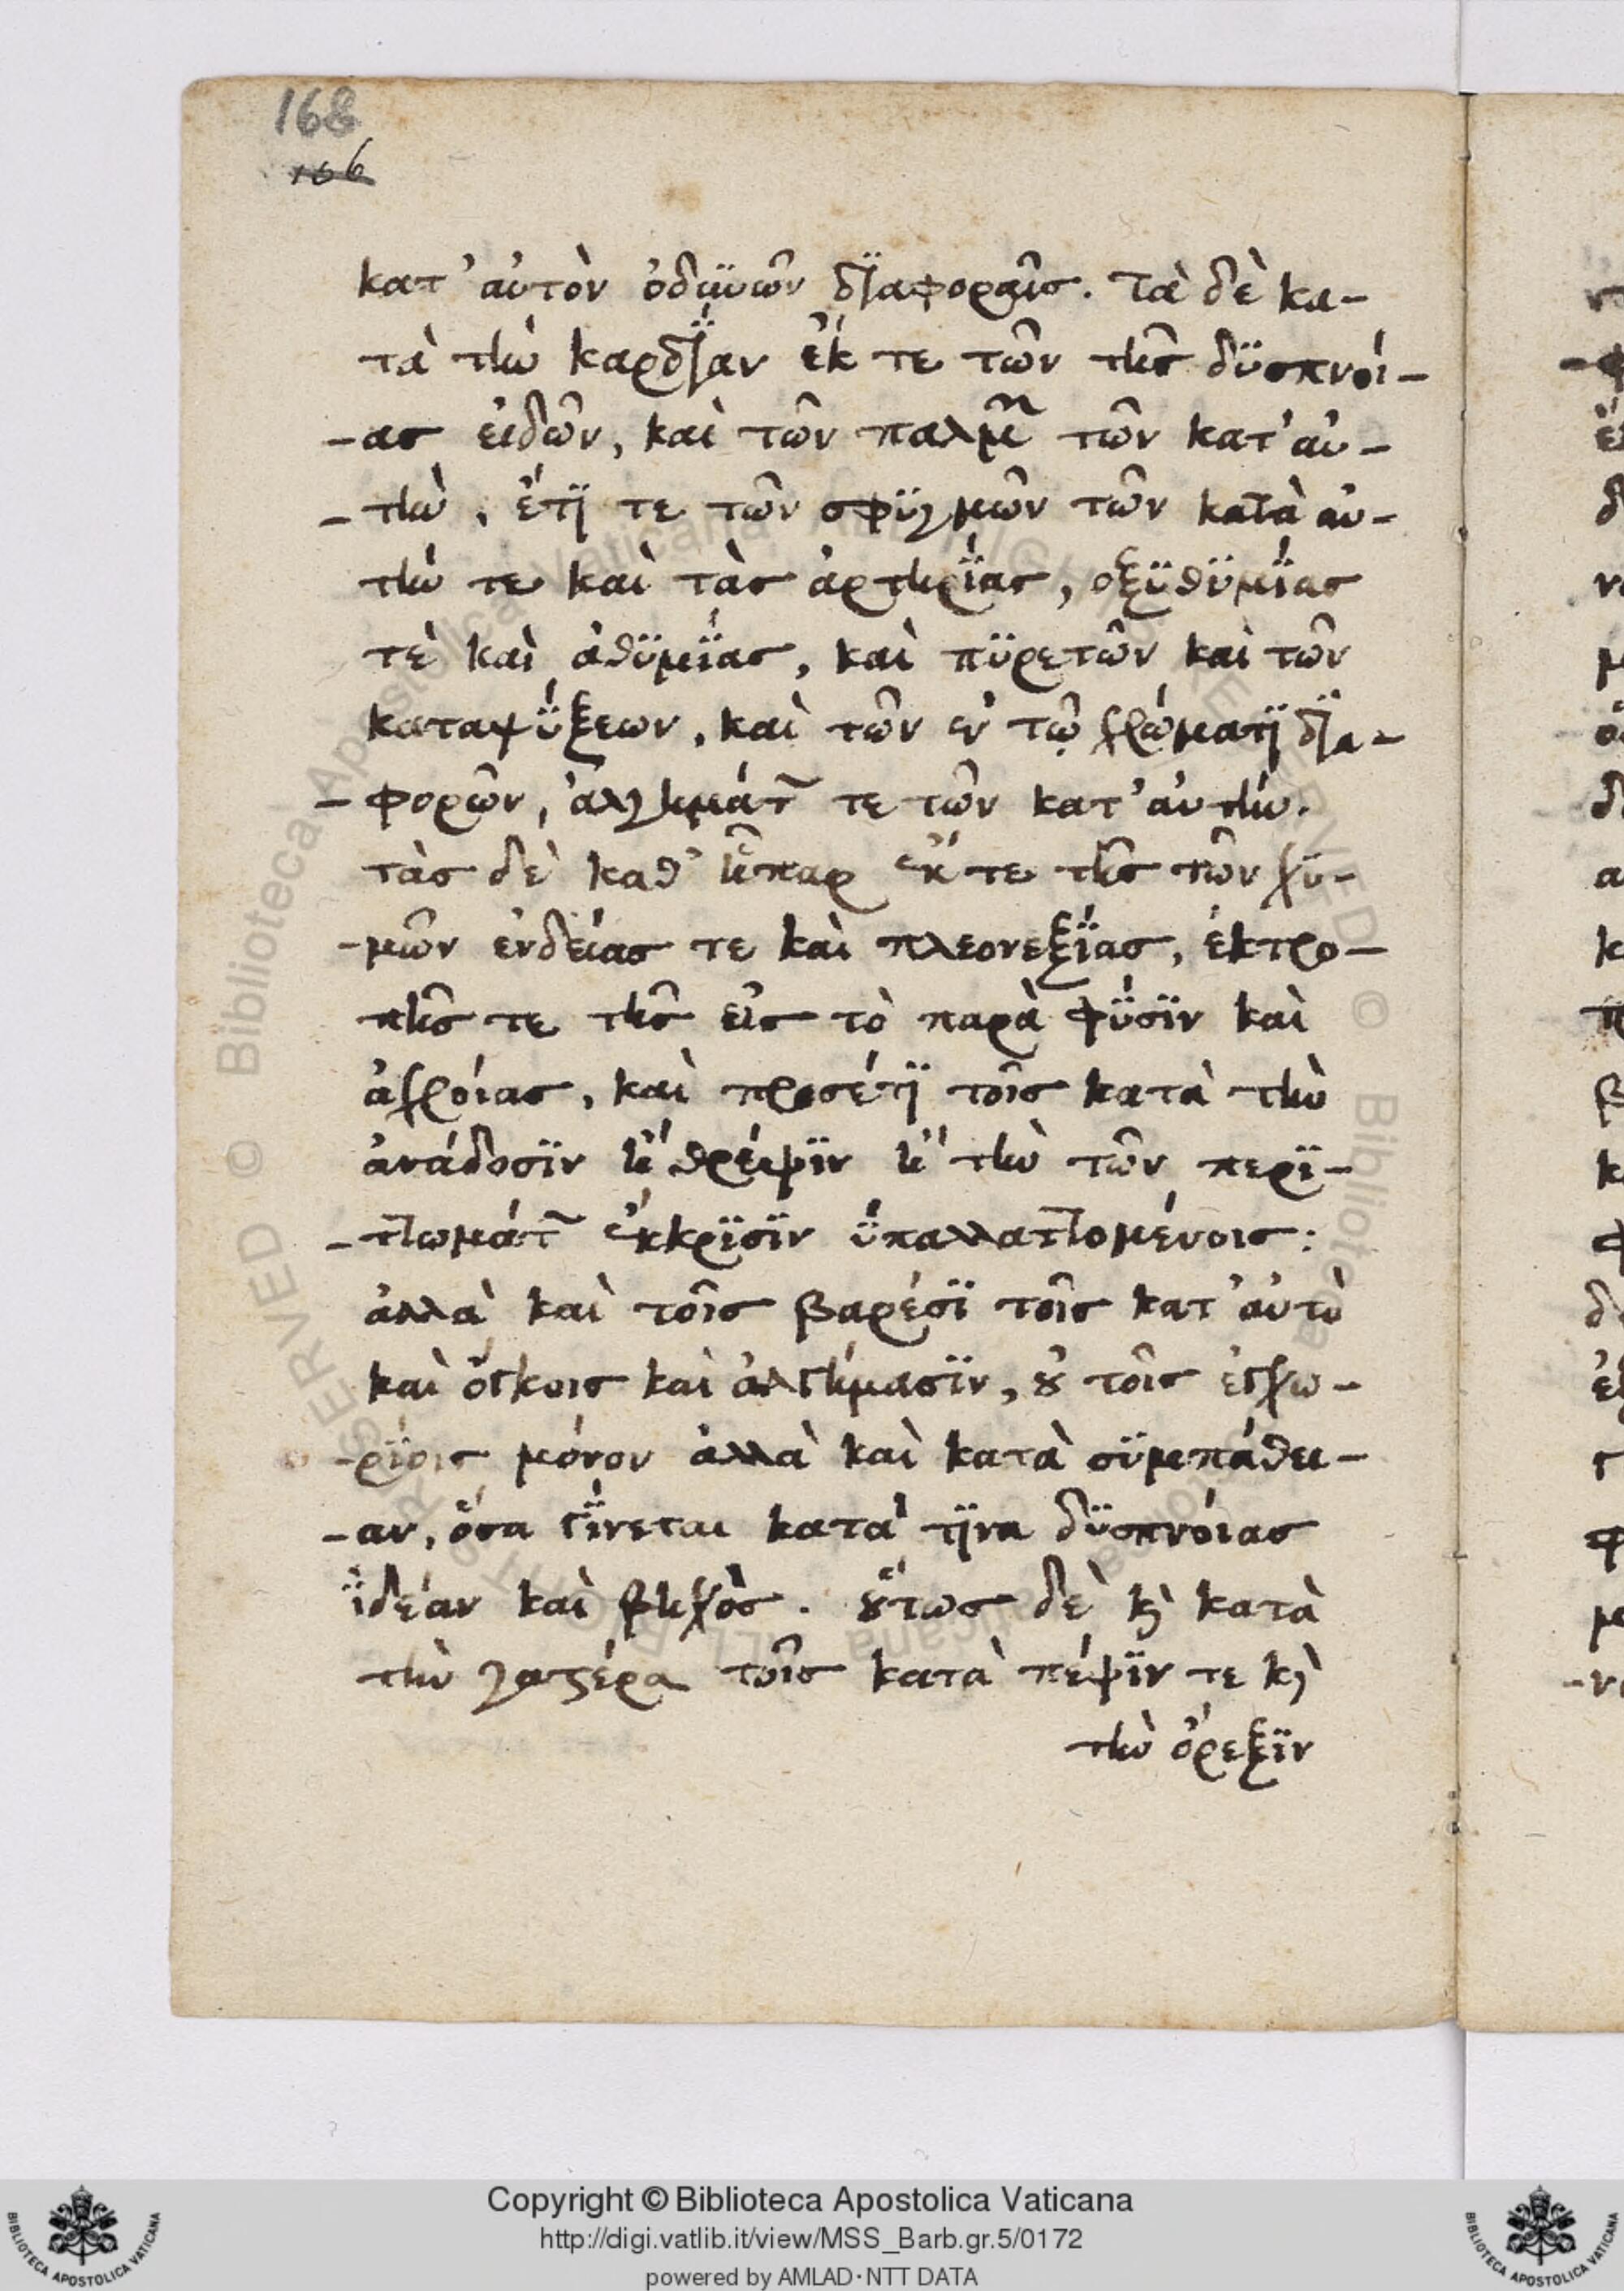 168
166
κατ' αὐτὸν ὀδϋνῶν δϊαφοραῖς. τὰ δὲ κα-
τὰ τὴν καρδΐαν ἔκ τε τῶν τῆς δϋσπνοί-
-ας εἰδῶν, καὶ τῶν παλμῶν τῶν κατ' αὐ-
-τὴν, ἔτϊ τε τῶν σφϋγμῶν τῶν κατὰ αὐ-
τὴν τε καὶ τὰς ἀρτηρΐας, οξϋθϋμΐας
τὲ καὶ ἀθϋμΐας, καὶ πϋρετῶν καὶ τῶν
καταψΰξεων, καὶ τῶν ἐν τῷ χρώματϊ δϊα-
-φορῶν, ἀλγημάτ~ τε τῶν κατ' αὐτήν.
τὰς δὲ καθ' ἧπαρ ἔκ τε τῆς τῶν χϋ-
-μῶν ἐνδείας τε καὶ πλεονεξΐας, ἐκτρο-
πῆς τε τῆς εἰς τὸ παρὰ φΰσϊν καὶ
ἀχροίας, καὶ προσέτϊ τοῖς κατὰ τὴν
ἀνάδοσϊν ἢ θρέψϊν ἢ τὴν τῶν περϊ-
-τωμάτ~ ἔκκρϊσϊν ΰπαλλαττομένοις:
ἀλλὰ καὶ τοῖς βαρέσϊ τοῖς κατ' αὐτὸ
καὶ ὄγκοις καὶ ἀλγήμασϊν, ȣ τοῖς ἐγχω-
-ρΐοις μόνον ἀλλὰ καὶ κατὰ σϋμπάθει-
-αν, ὅσα γΐνεται κατά τϊνα δϋσπνοίας
ϊδέαν καὶ βηχὸς. ȣ̔́τως δὲ κ̀ κατὰ
τὴν γαϛέρα τοῖς κατὰ πέψϊν τε κ̀
τὴν ὄρεξϊν
Copyright © Biblioteca Apostolica Vaticana
http://digi.vatlib.it/view/MSS_Barb.gr.5/0172
powered by AMLAD·NTT DATA